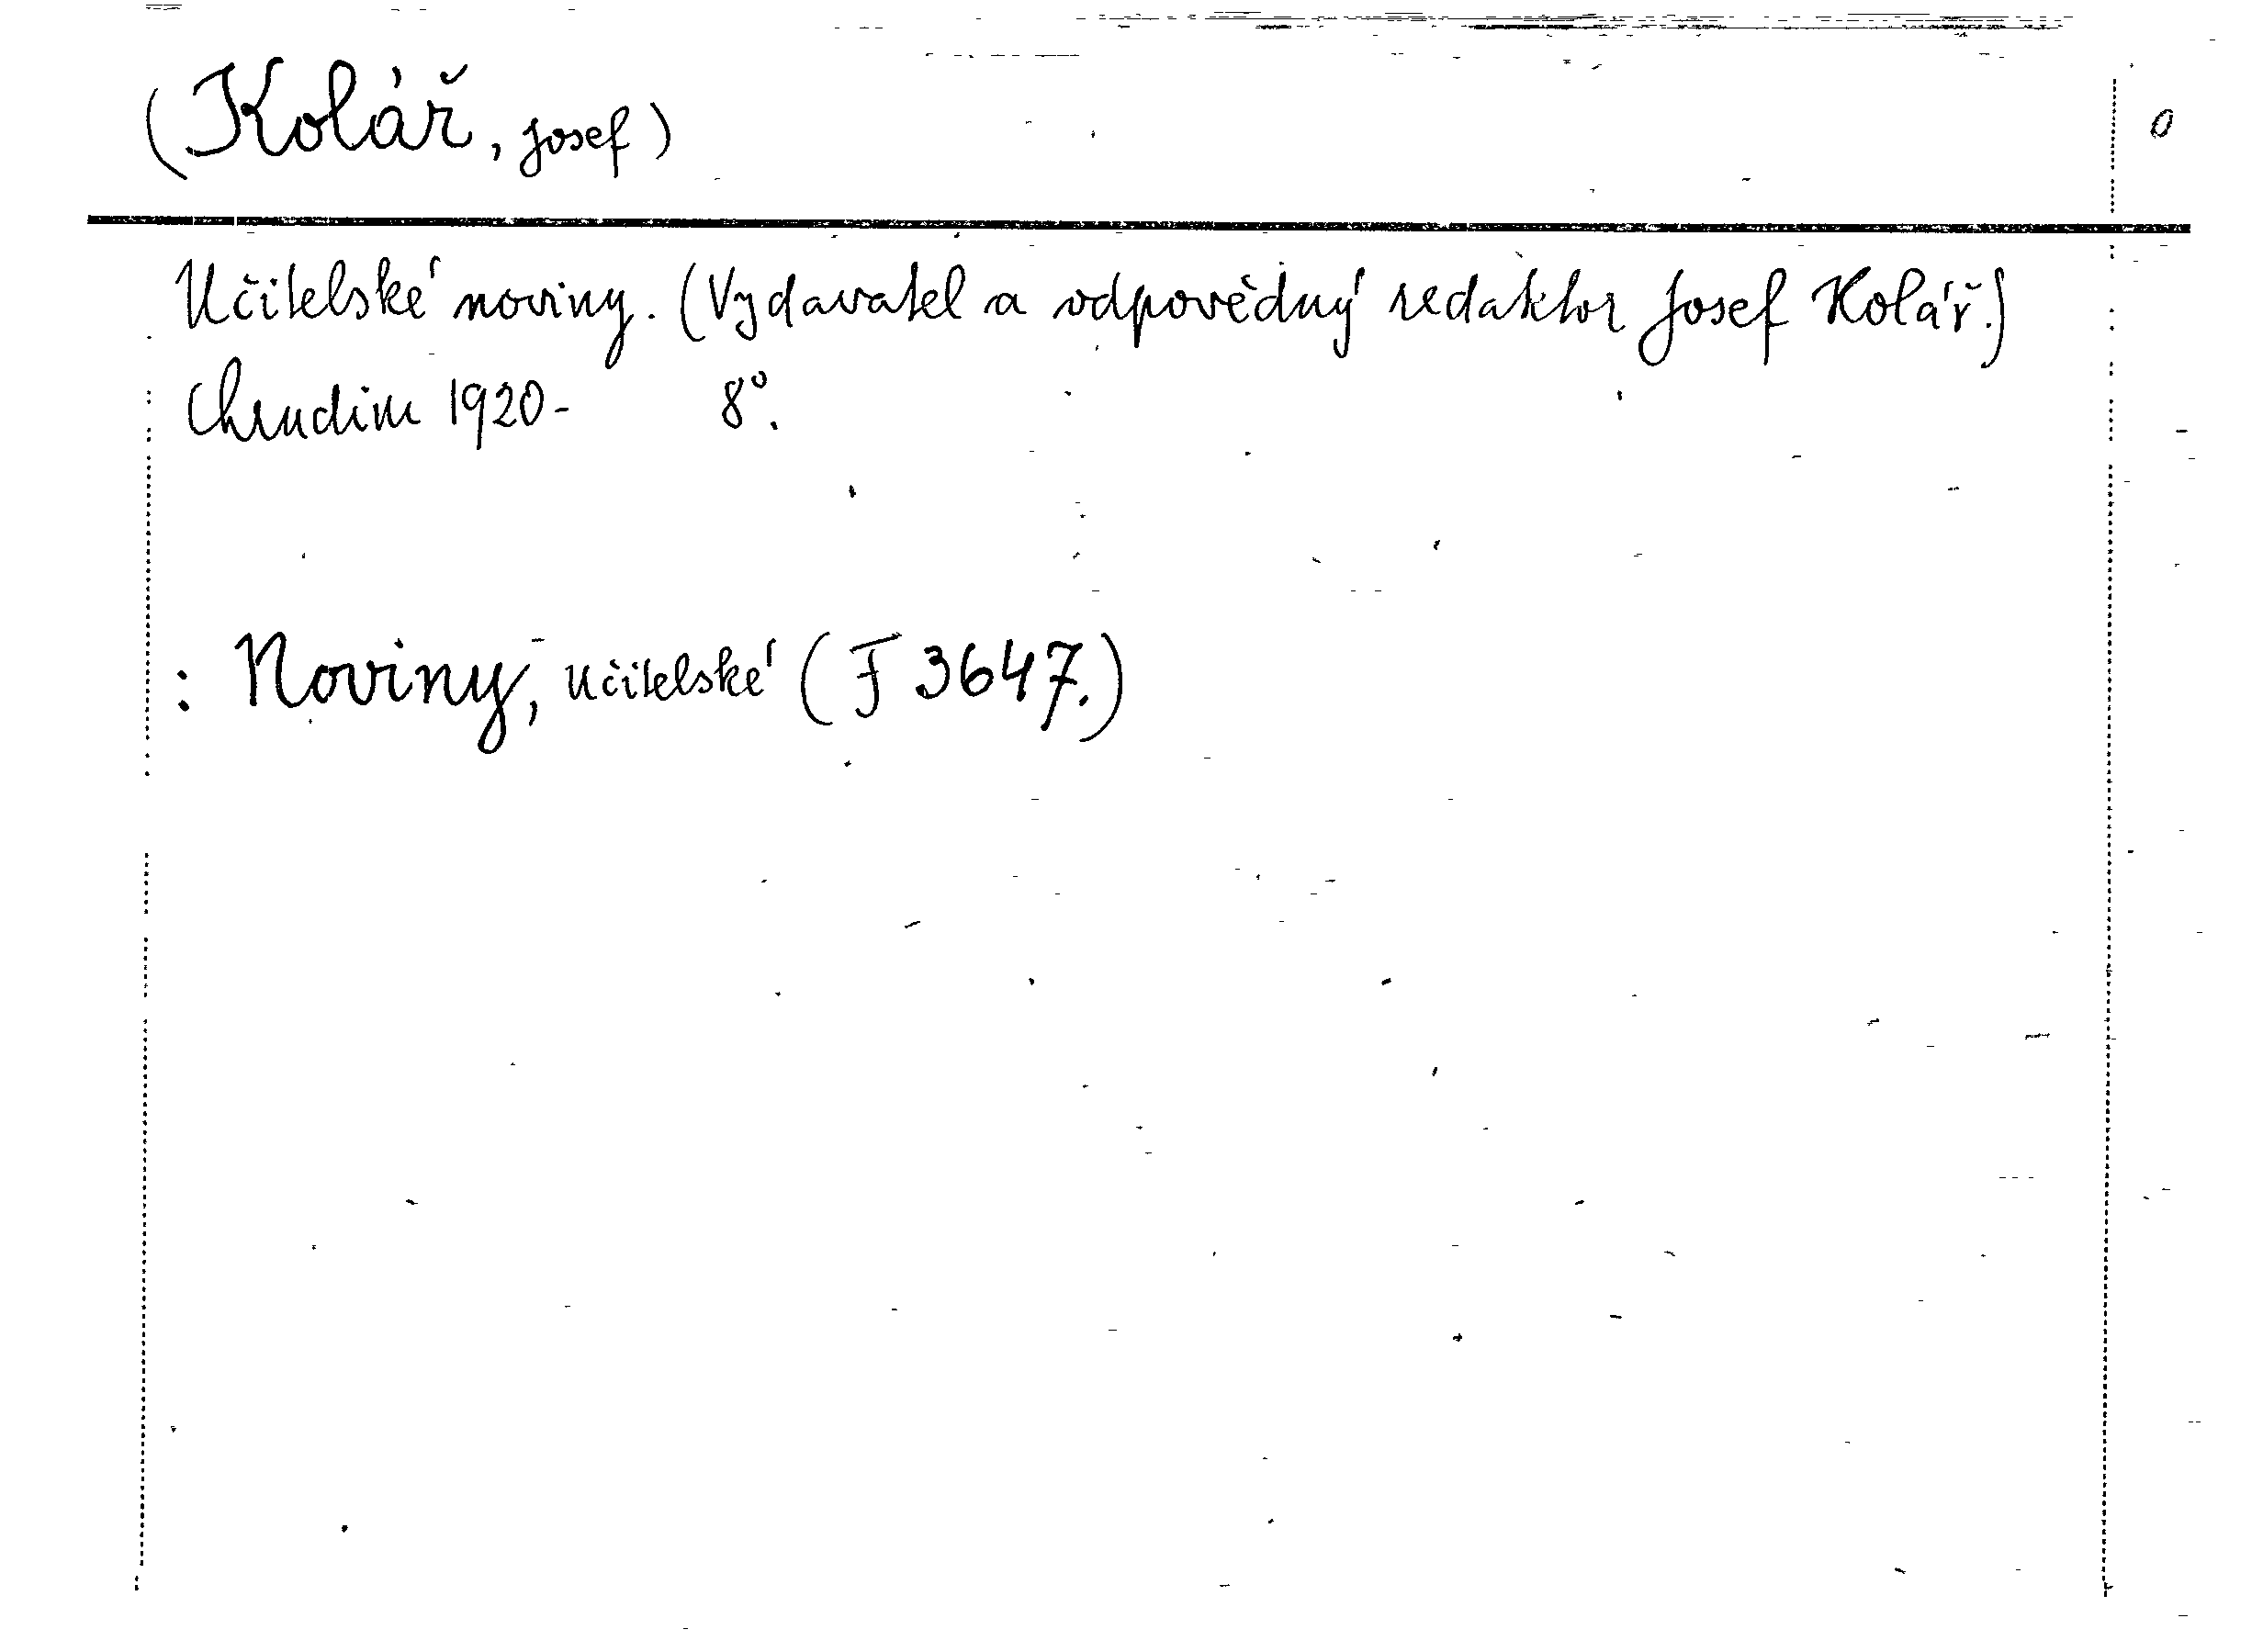 (Kolář, Josef) 0
Učitelské noviny. (Vydavatel a odpovědný redaktor Josef Kolář.)
Chrudim 1920- 8°.
: Noviny, učitelské (F 3647.)